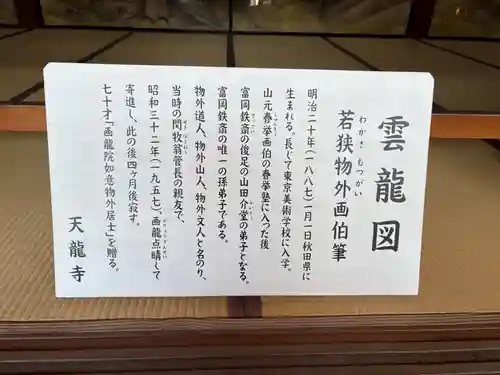 雲龍図
若狭物外画伯筆
わかさ もつがい
明治二十年(一八八七)一月一日秋田県に
生まれる。長じて東京美術学校に入学。
山元春挙画伯の春挙塾に入つた後
富岡鉄斎の俊足の山田介堂の弟子となる。
富岡鉄斎の唯一の孫弟子である。
物外道人、物外山人、物外文人と名のり、
当時の関牧翁管長の親友で、
昭和三十二年(一九五七)、画龍点晴して
寄進し、此の後四ヶ月後寂す。
七十才「画龍院如意物外居士」を贈る。
天龍寺